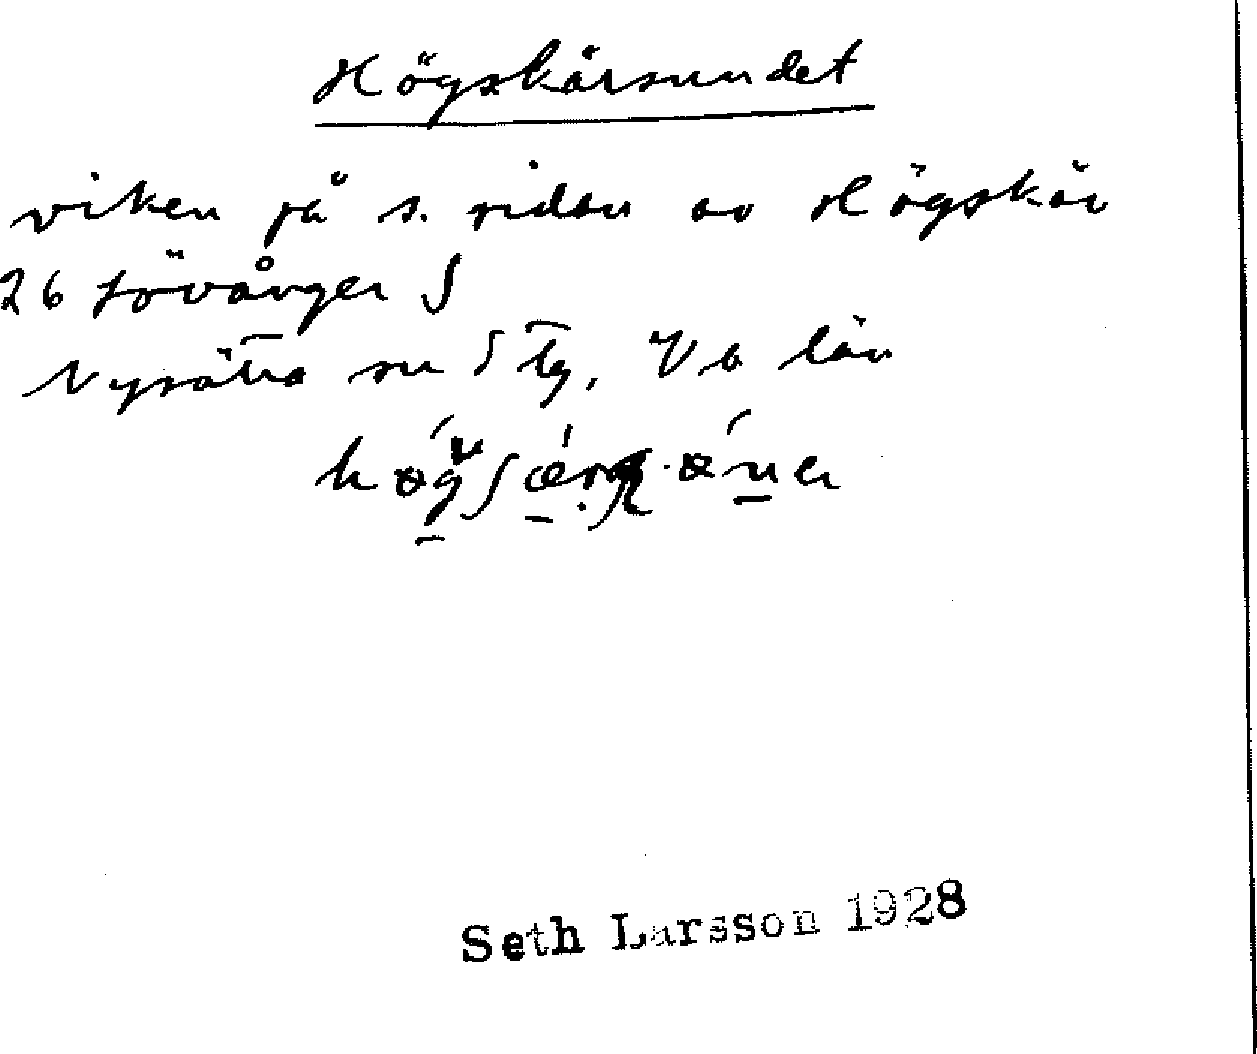 Högskärsundet
viken på s. sidan av Högskär
26 Lövånger S
Nysätra sn S tg, Vb län
Seth Larsson 1928